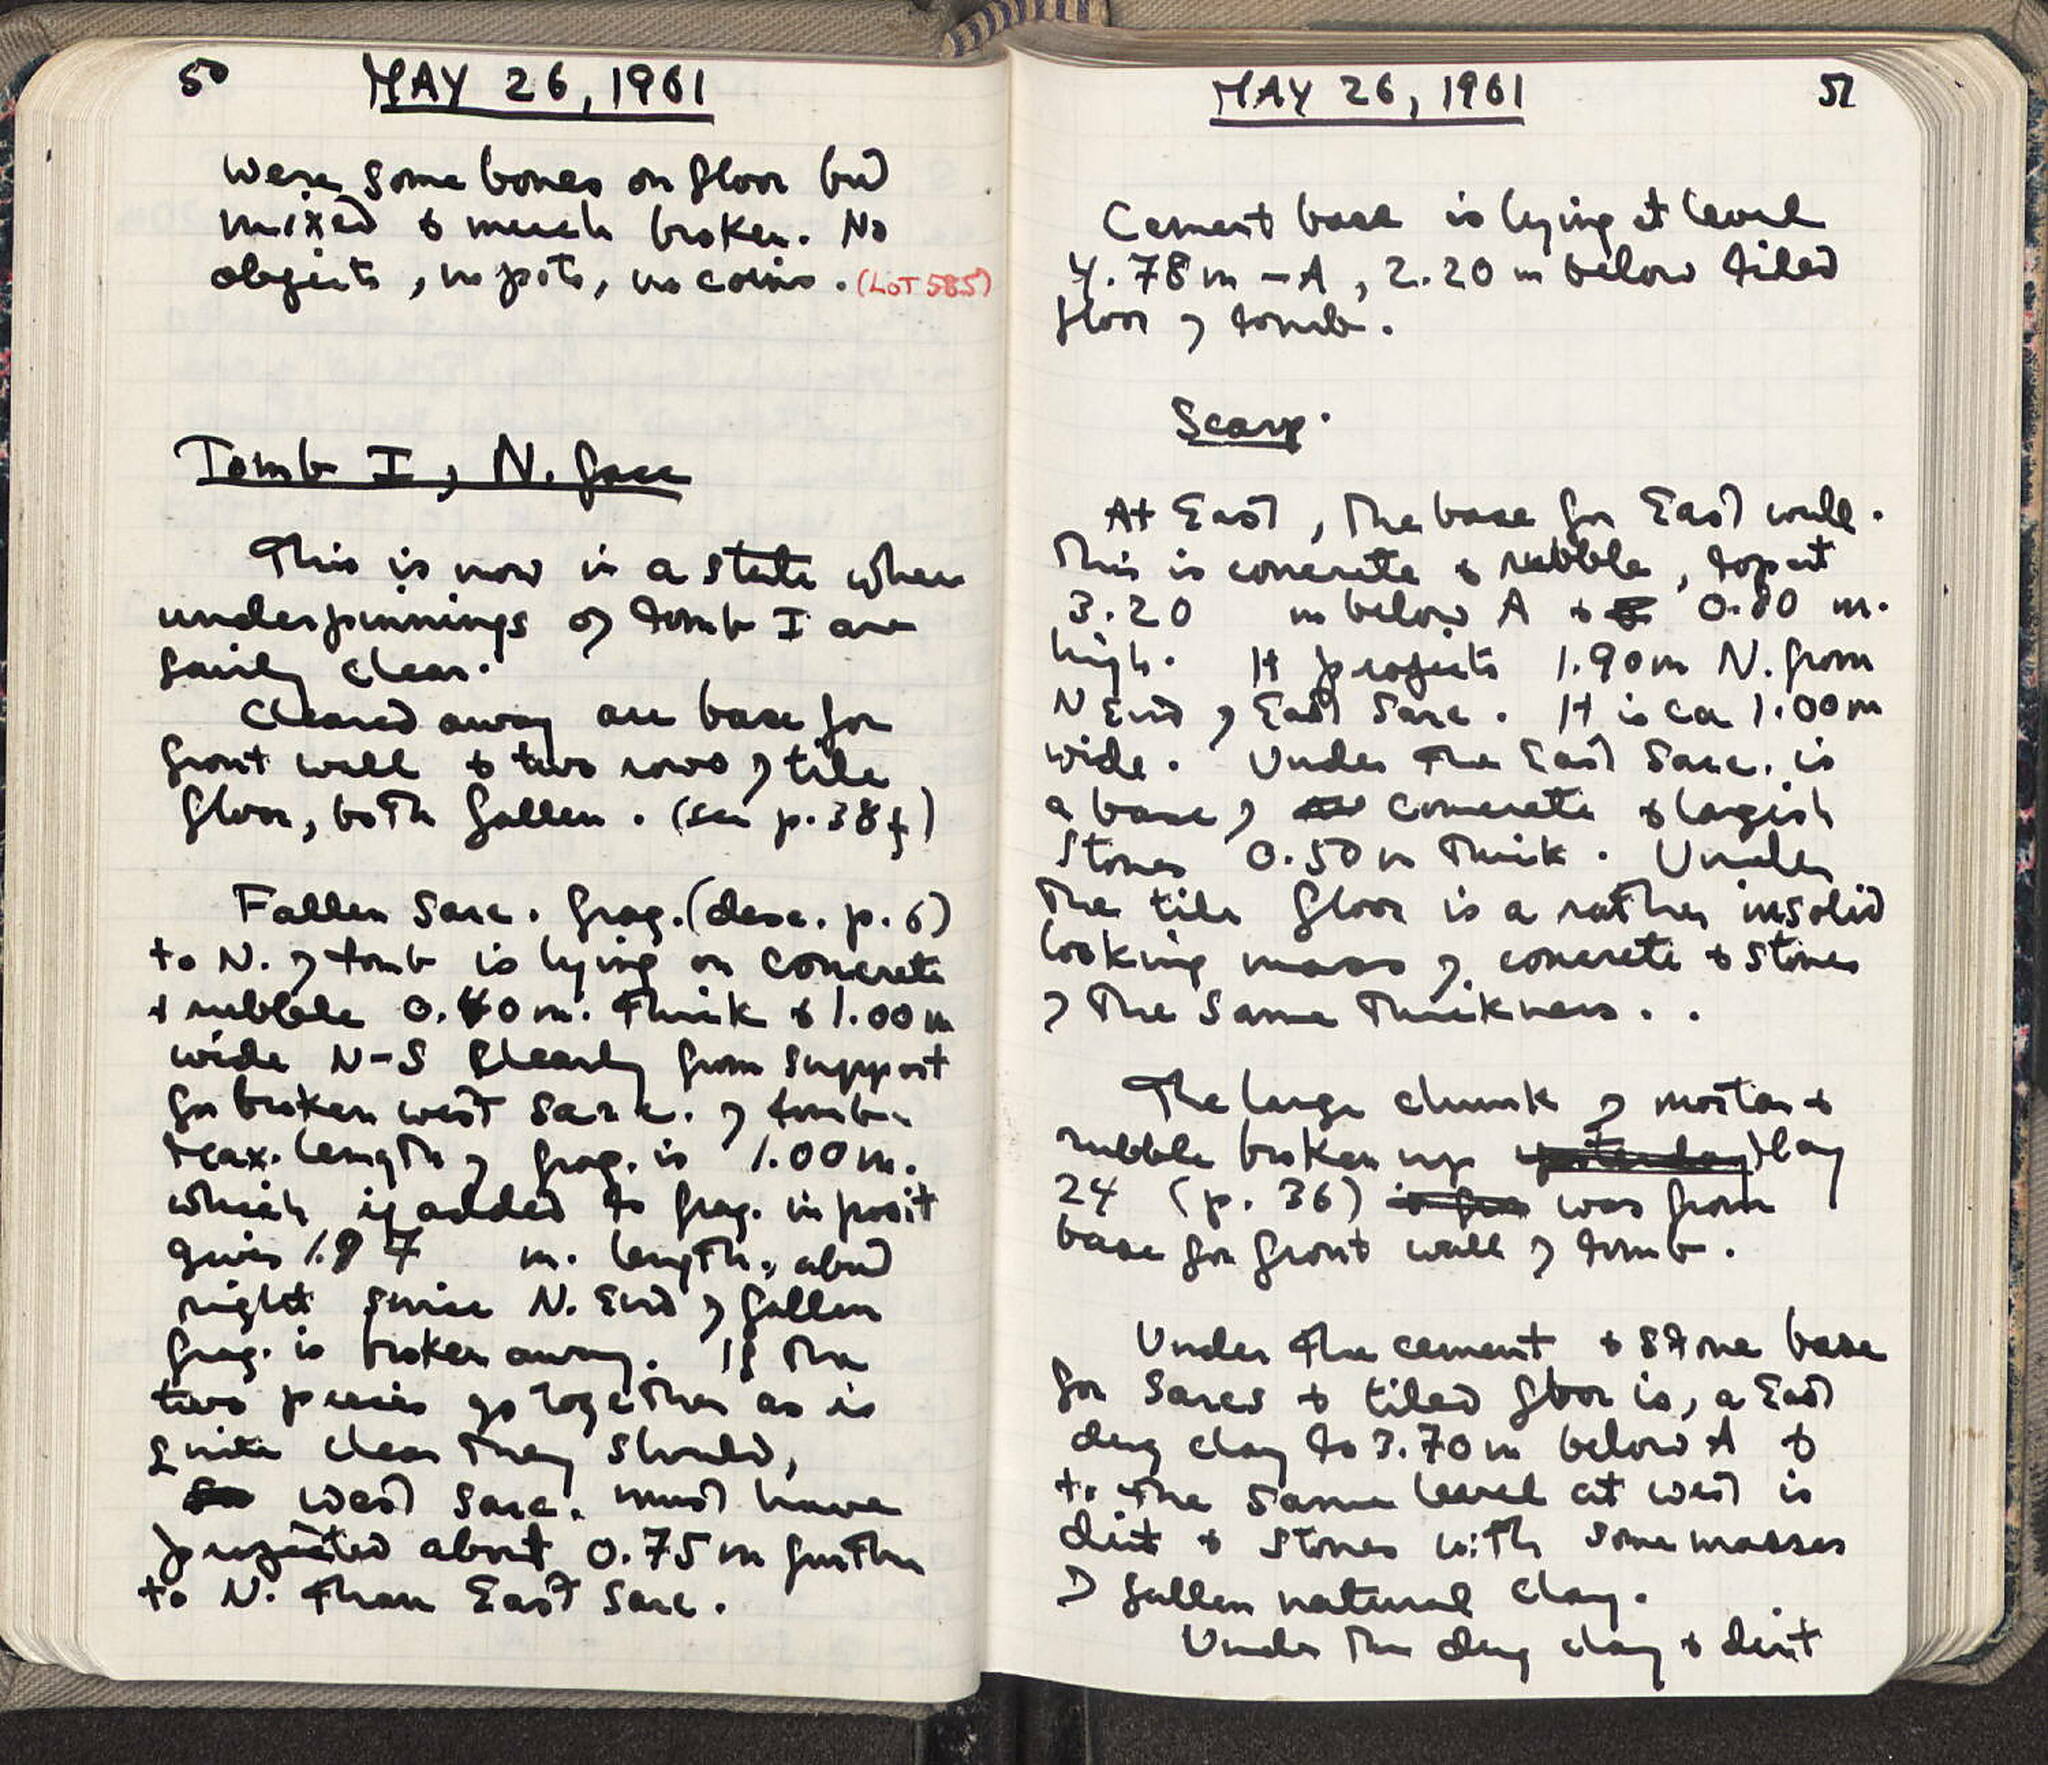 50 MAY 26, 1961
were some bones on floor but
mixed & much broken. No
objects, no pots, no coins. (LOT 585)
Tomb I, N. face
This is now in a state where
underpinnings of tomb I are
fairly clear.
Cleared away are base for
front wall & two rows of tile
floor, both fallen. (see p. 38f)
Fallen Sarc. frag. (desc. p. 6)
to N. of tomb is lying on concrete
& rubble 0.40 m. thick & 1.00 m
wide N-S clearly from support
for broken west sarc. of tomb.
Max. length of frag. is 1.00 m.
which if added to frag. in posit
gives 1.97 m. length, about
right since N. End of fallen
frag. is broken away. If the
two pieces go together as is
quite clear they should,
west sarc. must have
projected about 0.75 m further
to N. than East Sarc.
MAY 26, 1961 51
Cement base is lying at level
4.78 m - A, 2.20 m below tiled
floor of tomb.
Scarp.
At East, the base for East wall.
This is concrete & rubble, top at
3.20 m below A & 0.80 m.
high. It projects 1.90 m N. from
N End of East Sarc. It is ca 1.00 m
wide. Under the East Sarc. is
a base of concrete & largish
stones 0.50 m thick. Under
the tile floor is a rather insolid
looking mass of concrete & stones
of the same thickness..
The large chunk of mortar &
rubble broken up yesterday May
24 (p. 36) was from
base for front wall of tomb.
Under the cement & stone base
for sarcs & tiled floor is, a East
dug clay to 3.70 m below A &
to the same level at west is
dirt & stones with some masses
of fallen natural clay.
Under the dug clay & dirt